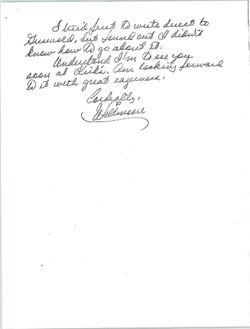 I tried first to write direct to
Griswold, but found out I didn't
know how to go about it.
Understand I'm to see you
soon at Kirk's. Am looking forward
to it with great eagerness.
Cordially,